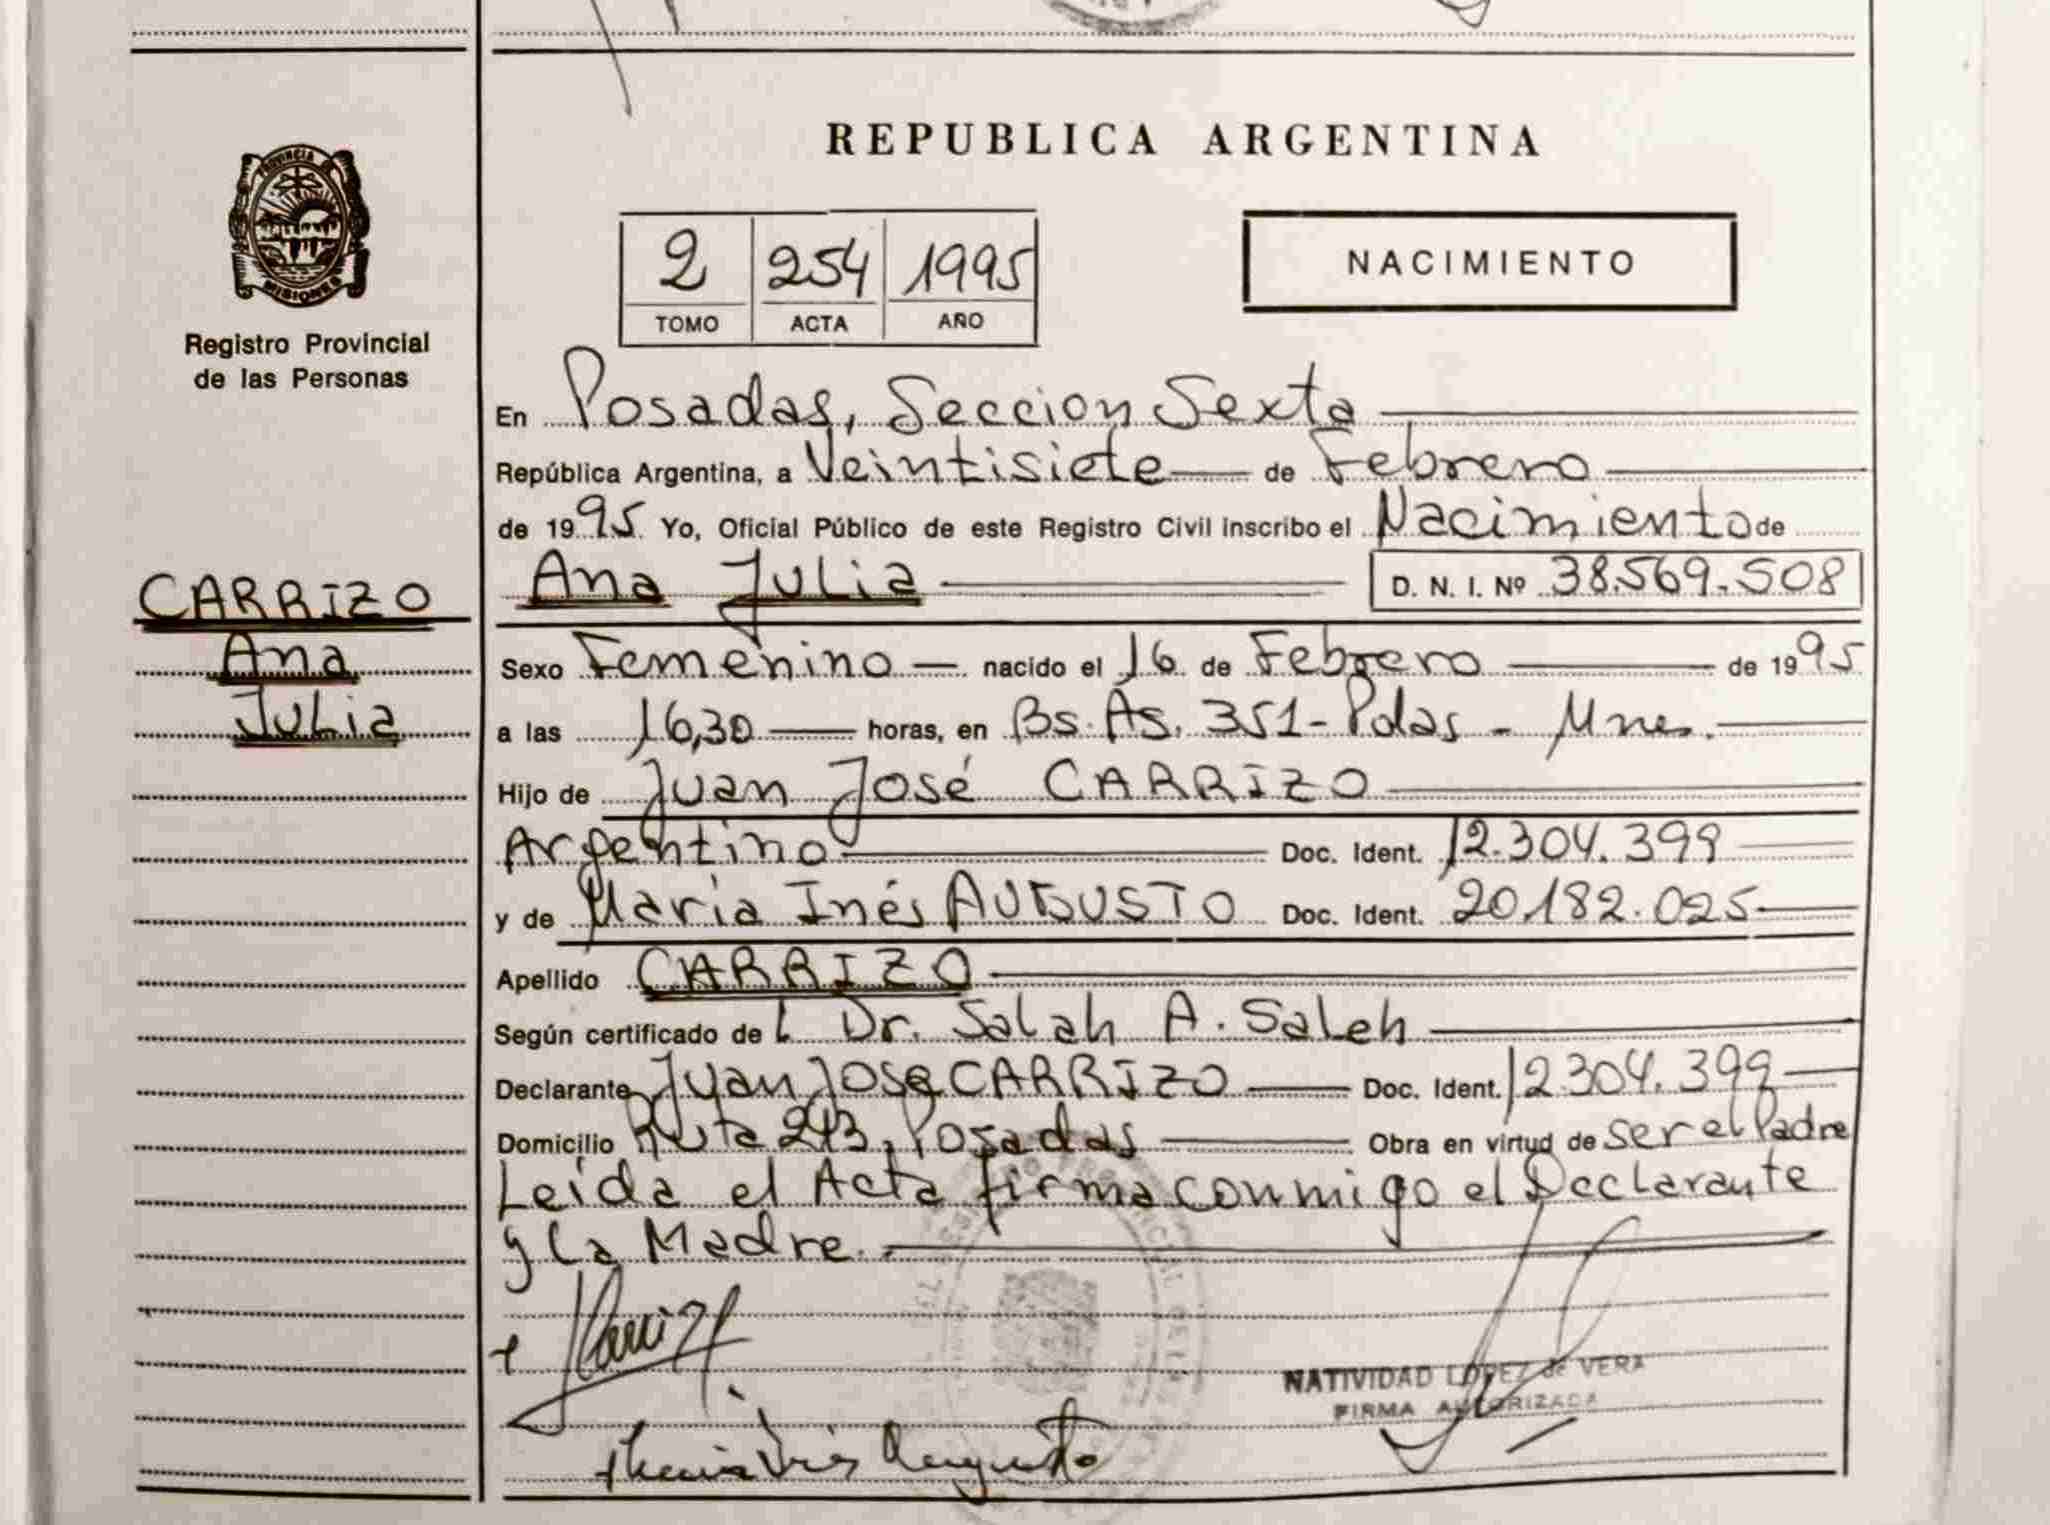 REPUBLICA ARGENTINA
PROVINCIA DE
MISIONES
Registro Provincial
de las Personas
2 254 1995
TOMO ACTA AÑO
NACIMIENTO
En Posadas, Seccion Sexta
República Argentina, a Veintisiete de Febrero
de 1995. Yo, Oficial Público de este Registro Civil inscribo el Nacimiento de
CARRIZO
Ana
Julia
Ana Julia D. N. I. Nº 38.569.508
Sexo Femenino nacido el 16 de Febrero de 1995
a las 16,30 horas, en Bs. As. 351 - Pdas - Mnes.
Hijo de Juan José CARRIZO
Argentino Doc. Ident. 12.304.399
y de María Inés AUGUSTO Doc. Ident. 20.182.025
Apellido CARRIZO
Según certificado del Dr. Salah A. Saleh
Declarante Juan José CARRIZO Doc. Ident. 12.304.399
Domicilio Ruta 213, Posadas Obra en virtud de ser el Padre
Leída el Acta firma conmigo el Declarante
y la Madre.
NATIVIDAD LOPEZ de VERA
FIRMA AUTORIZADA
María Inés Augusto